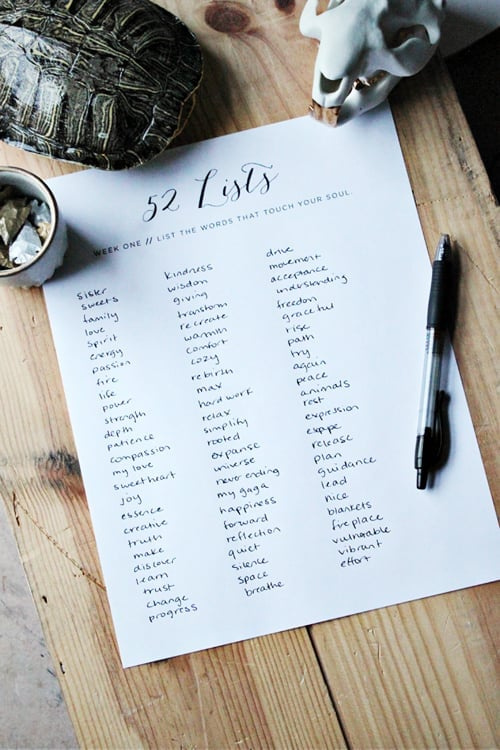 52 Lists
WEEK ONE // LIST THE WORDS THAT TOUCH YOUR SOUL.
sister
sweets
family
love
spirit
energy
passion
fire
life
power
strength
depth
patience
compassion
my love
sweetheart
joy
essence
creative
truth
make
discover
learn
trust
change
progress
kindness
wisdom
giving
transform
recreate
warmth
comfort
cozy
rebirth
max
hard work
relax
simplify
rooted
expanse
universe
never ending
my gaga
happiness
forward
reflection
quiet
silence
space
breathe
drive
movement
acceptance
understanding
freedom
graceful
rise
path
try
again
peace
animals
rest
expression
release
plan
guidance
lead
nice
blankets
fireplace
vulnerable
vibrant
effort